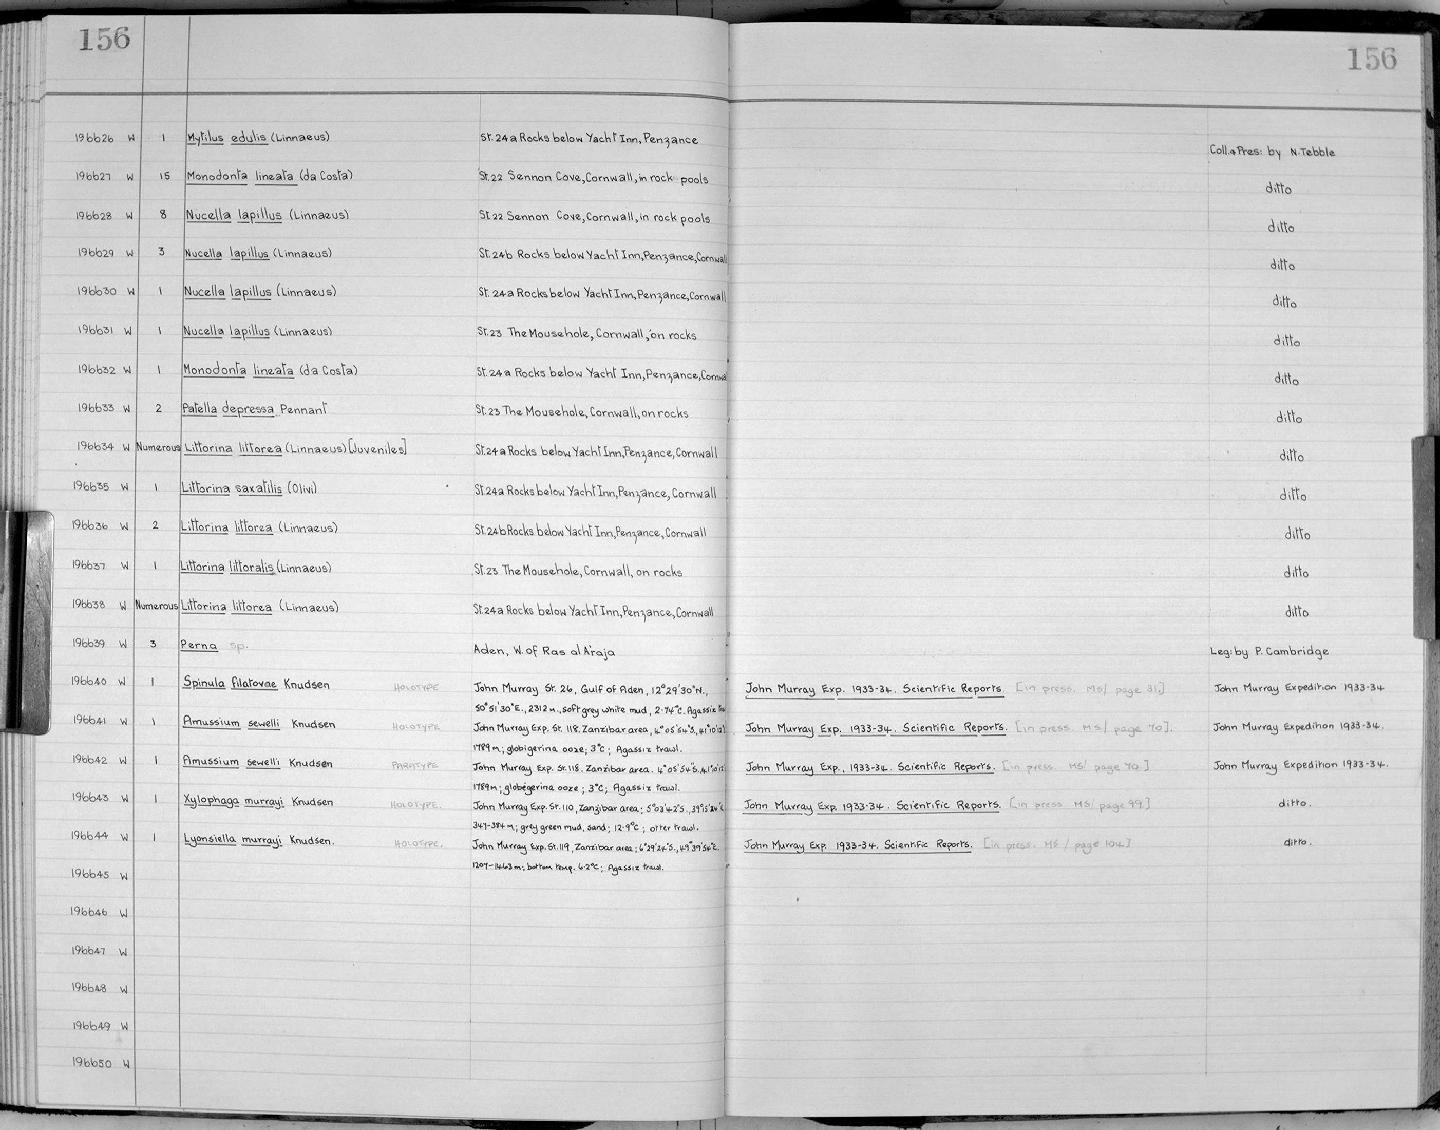 156
156
196626 W 1 Mytilus edulis (Linnaeus) St. 24a Rocks below Yacht Inn, Penzance Coll. & Pres: by N. Tebble
196627 W 15 Monodonta lineata (da Costa) St. 22 Sennon Cove, Cornwall, in rock pools ditto
196628 W 8 Nucella lapillus (Linnaeus) St 22 Sennon Cove, Cornwall, in rock pools ditto
196629 W 3 Nucella lapillus (Linnaeus) St. 24b Rocks below Yacht Inn, Penzance, Cornwall ditto
196630 W 1 Nucella lapillus (Linnaeus) St. 24a Rocks below Yacht Inn, Penzance, Cornwall ditto
196631 W 1 Nucella lapillus (Linnaeus) St. 23 The Mousehole, Cornwall, on rocks ditto
196632 W 1 Monodonta lineata (da Costa) St. 24a Rocks below Yacht Inn, Penzance, Cornwa ditto
196633 W 2 Patella depressa Pennant St. 23 The Mousehole, Cornwall, on rocks ditto
196634 W Numerous Littorina littorea (Linnaeus) [Juveniles] St. 24a Rocks below Yacht Inn, Penzance, Cornwall ditto
196635 W 1 Littorina saxatilis (Olivi) St. 24a Rocks below Yacht Inn, Penzance, Cornwall ditto
196636 W 2 Littorina littorea (Linnaeus) St. 24b Rocks below Yacht Inn, Penzance, Cornwall ditto
196637 W 1 Littorina littoralis (Linnaeus) St. 23 The Mousehole, Cornwall, on rocks ditto
196638 W Numerous Littorina littorea (Linnaeus) St. 24a Rocks below Yacht Inn, Penzance, Cornwall ditto
196639 W 3 Perna sp. Aden, W. of Ras al A'raja Leg: by P. Cambridge
196640 W 1 Spinula filatovae Knudsen HOLOTYPE John Murray St. 26, Gulf of Aden, 12°29'30"N., John Murray Exp. 1933-34. Scientific Reports. [in press. MS/ page 31.] John Murray Expedition 1933-34
50°51'30"E., 2312 m., soft grey white mud, 2.74°C. Agassiz
196641 W 1 Amussium sewelli Knudsen HOLOTYPE John Murray Exp. St. 118. Zanzibar area, 4°05'54"S, John Murray Exp. 1933-34. Scientific Reports. [in press. MS/ page 70]. John Murray Expedition 1933-34.
1789m; globigerina ooze; 3°C; Agassiz trawl.
196642 W 1 Amussium sewelli Knudsen PARATYPE John Murray Exp. St. 118. Zanzibar area. 4°05'54"S, John Murray Exp., 1933-34. Scientific Reports. [in press. MS/ page 70.] John Murray Expedition 1933-34.
1789m; globegerina ooze; 3°C; Agassiz trawl.
196643 W 1 Xylophaga murrayi Knudsen HOLOTYPE. John Murray Exp. St. 110, Zanzibar area; 5°03'42"S., John Murray Exp. 1933-34. Scientific Reports. [in press MS/ page 99] ditto.
347-384 m; grey green mud, sand; 12.9°C; otter trawl.
196644 W 1 Lyonsiella murrayi Knudsen. HOLOTYPE. John Murray Exp. St. 119, Zanzibar area; 6°29'24"S., John Murray Exp. 1933-34. Scientific Reports. [in press. MS/ page 104] ditto.
1207-1463m; bottom temp. 6.2°C; Agassiz trawl.
196645 W
196646 W
196647 W
196648 W
196649 W
196650 W